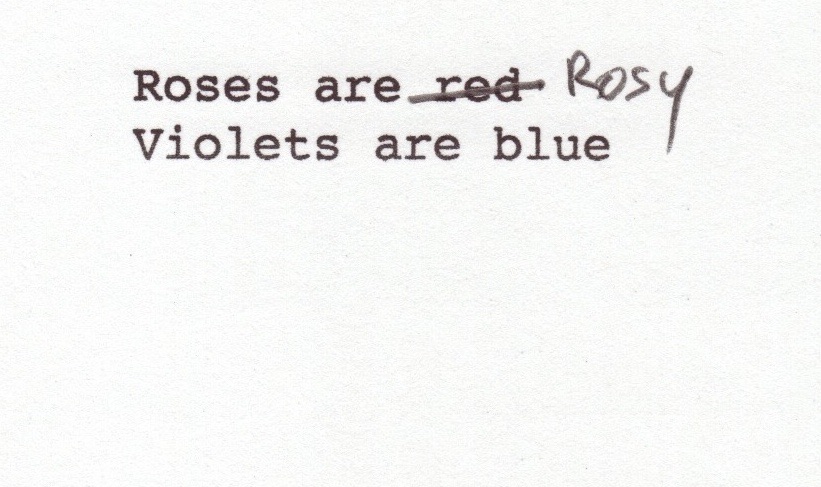 Roses are red Rosy
Violets are blue